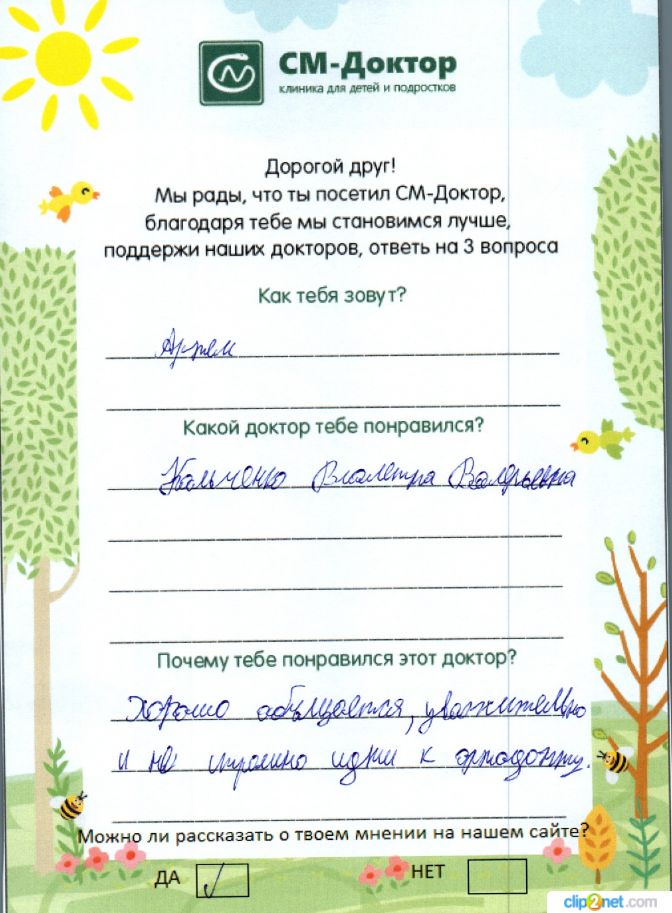 СМ-Доктор
клиника для детей и подростков
Дорогой друг!
Мы рады, что ты посетил СМ-Доктор,
благодаря тебе мы становимся лучше,
поддержи наших докторов, ответь на 3 вопроса
Как тебя зовут?
Артем
Какой доктор тебе понравился?
Виолетта Валерьевна
Почему тебе понравился этот доктор?
Хорошо общается, уважительно
и не страшно идти к ортодонту.
Можно ли рассказать о твоем мнении на нашем сайте?
ДА НЕТ
clip2net.com